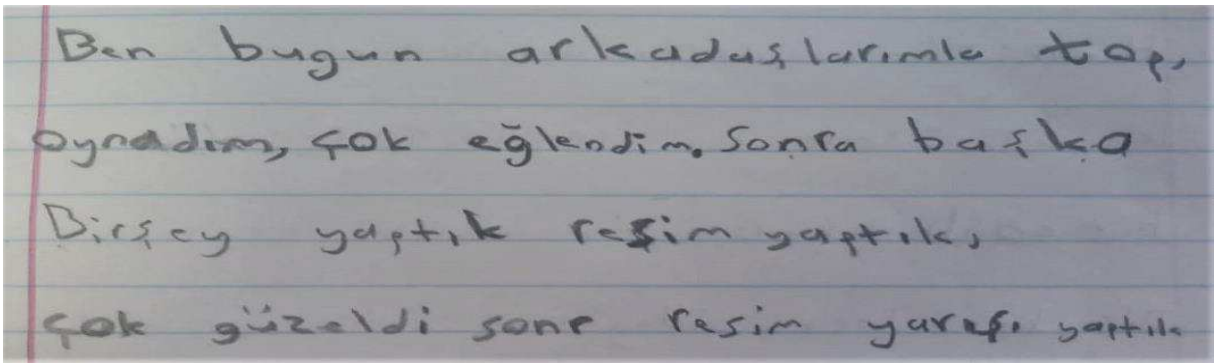 Ben bugun arkadaşlarımla top,
oynadım, çok eğlendim. Sonra başka
Birşey yaptık resim yaptık,
çok güzeldi sonr resim yarışı yaptık